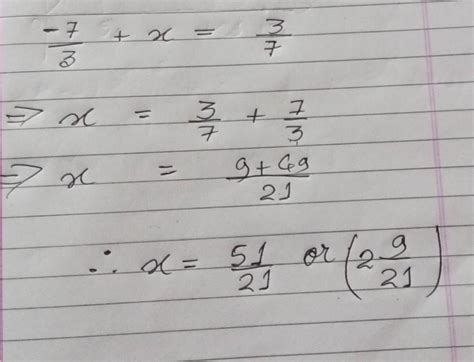 -7/3 + x = 3/7
⇒ x = 3/7 + 7/3
⇒ x = 9+49/21
∴ x = 51/21 or (2 9/21)